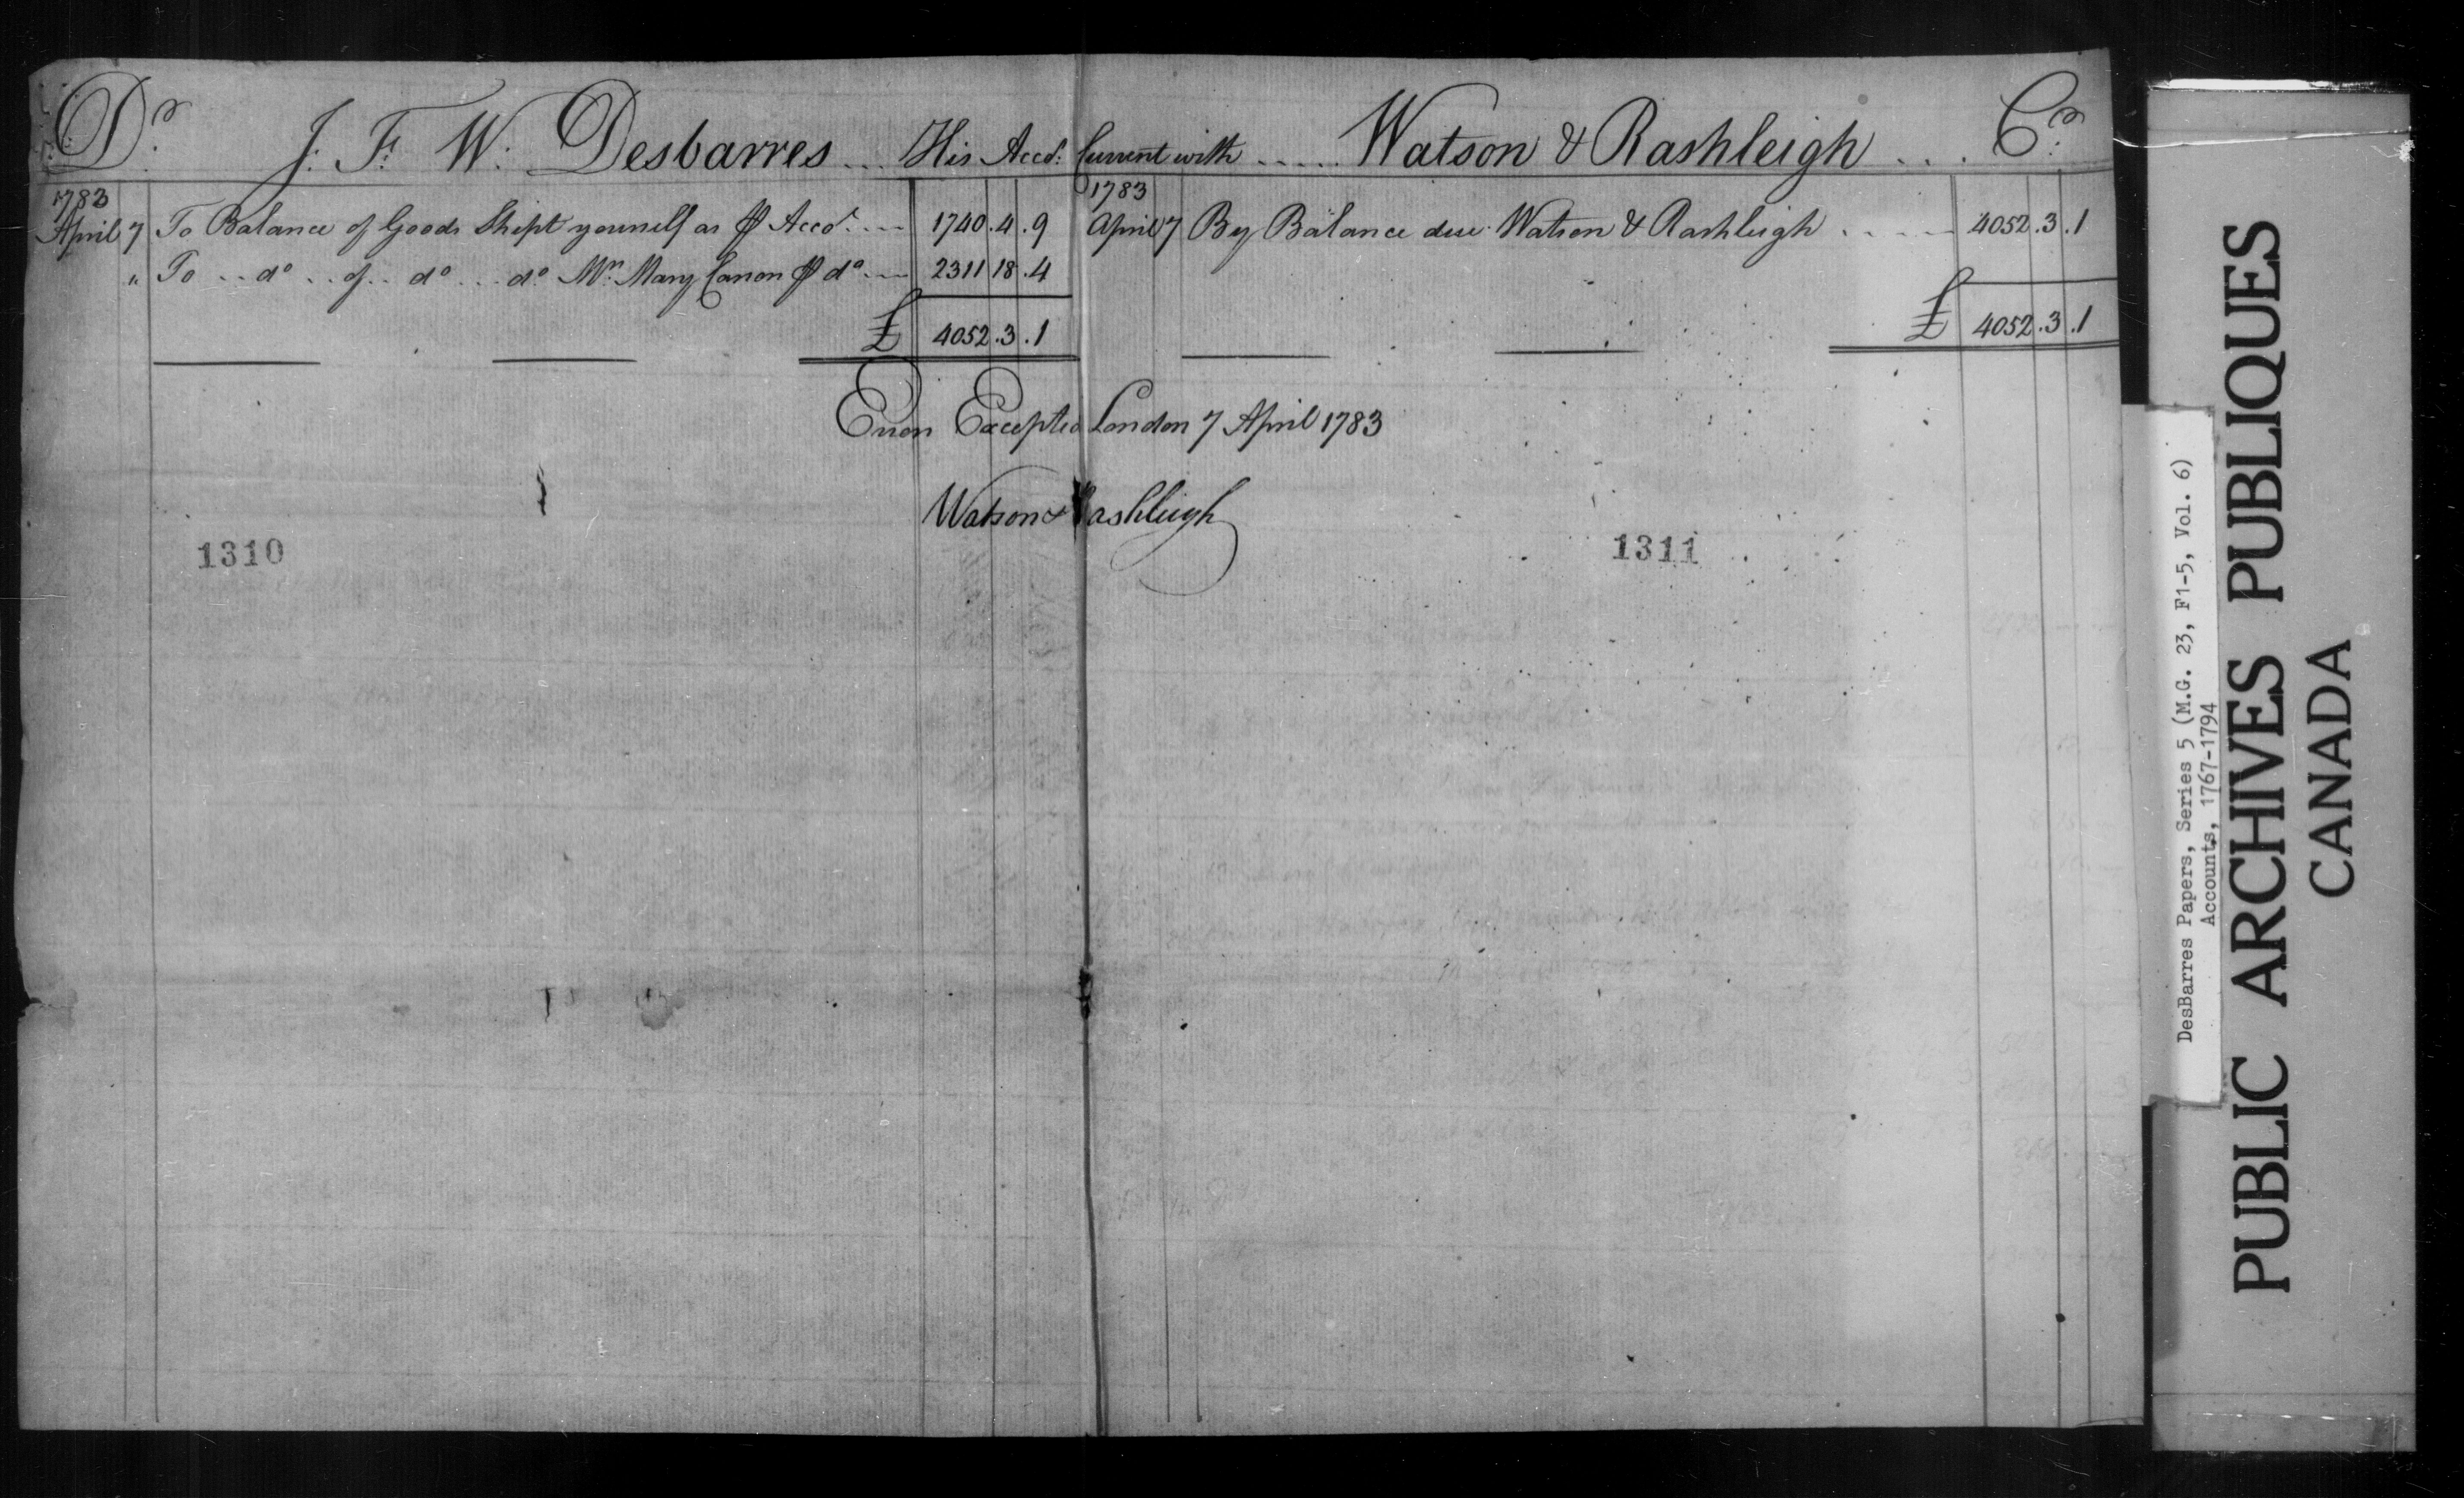 Dr. J. F. W. Desbarres ... His Accot. Current with ..... Watson & Rashleigh ... Cr.
1783
April 7 To Balance of Goods Shipt yourself as ⅌ Accot. ... 1740.4.9
" To ... do .. of .. do ... do. Mrs. Mary Canon ⅌ do ... 2311 18.4
£ 4052.3.1
1783
April 7 By Balance due Watson & Rashleigh ..... 4052.3.1
£ 4052.3.1
Errors Excepted London 7 April 1783
Watson & Rashleigh
1310
1311
DesBarres Papers, Series 5 (M.G. 23, F1-5, Vol. 6)
Accounts, 1767-1794
PUBLIC ARCHIVES PUBLIQUES
CANADA